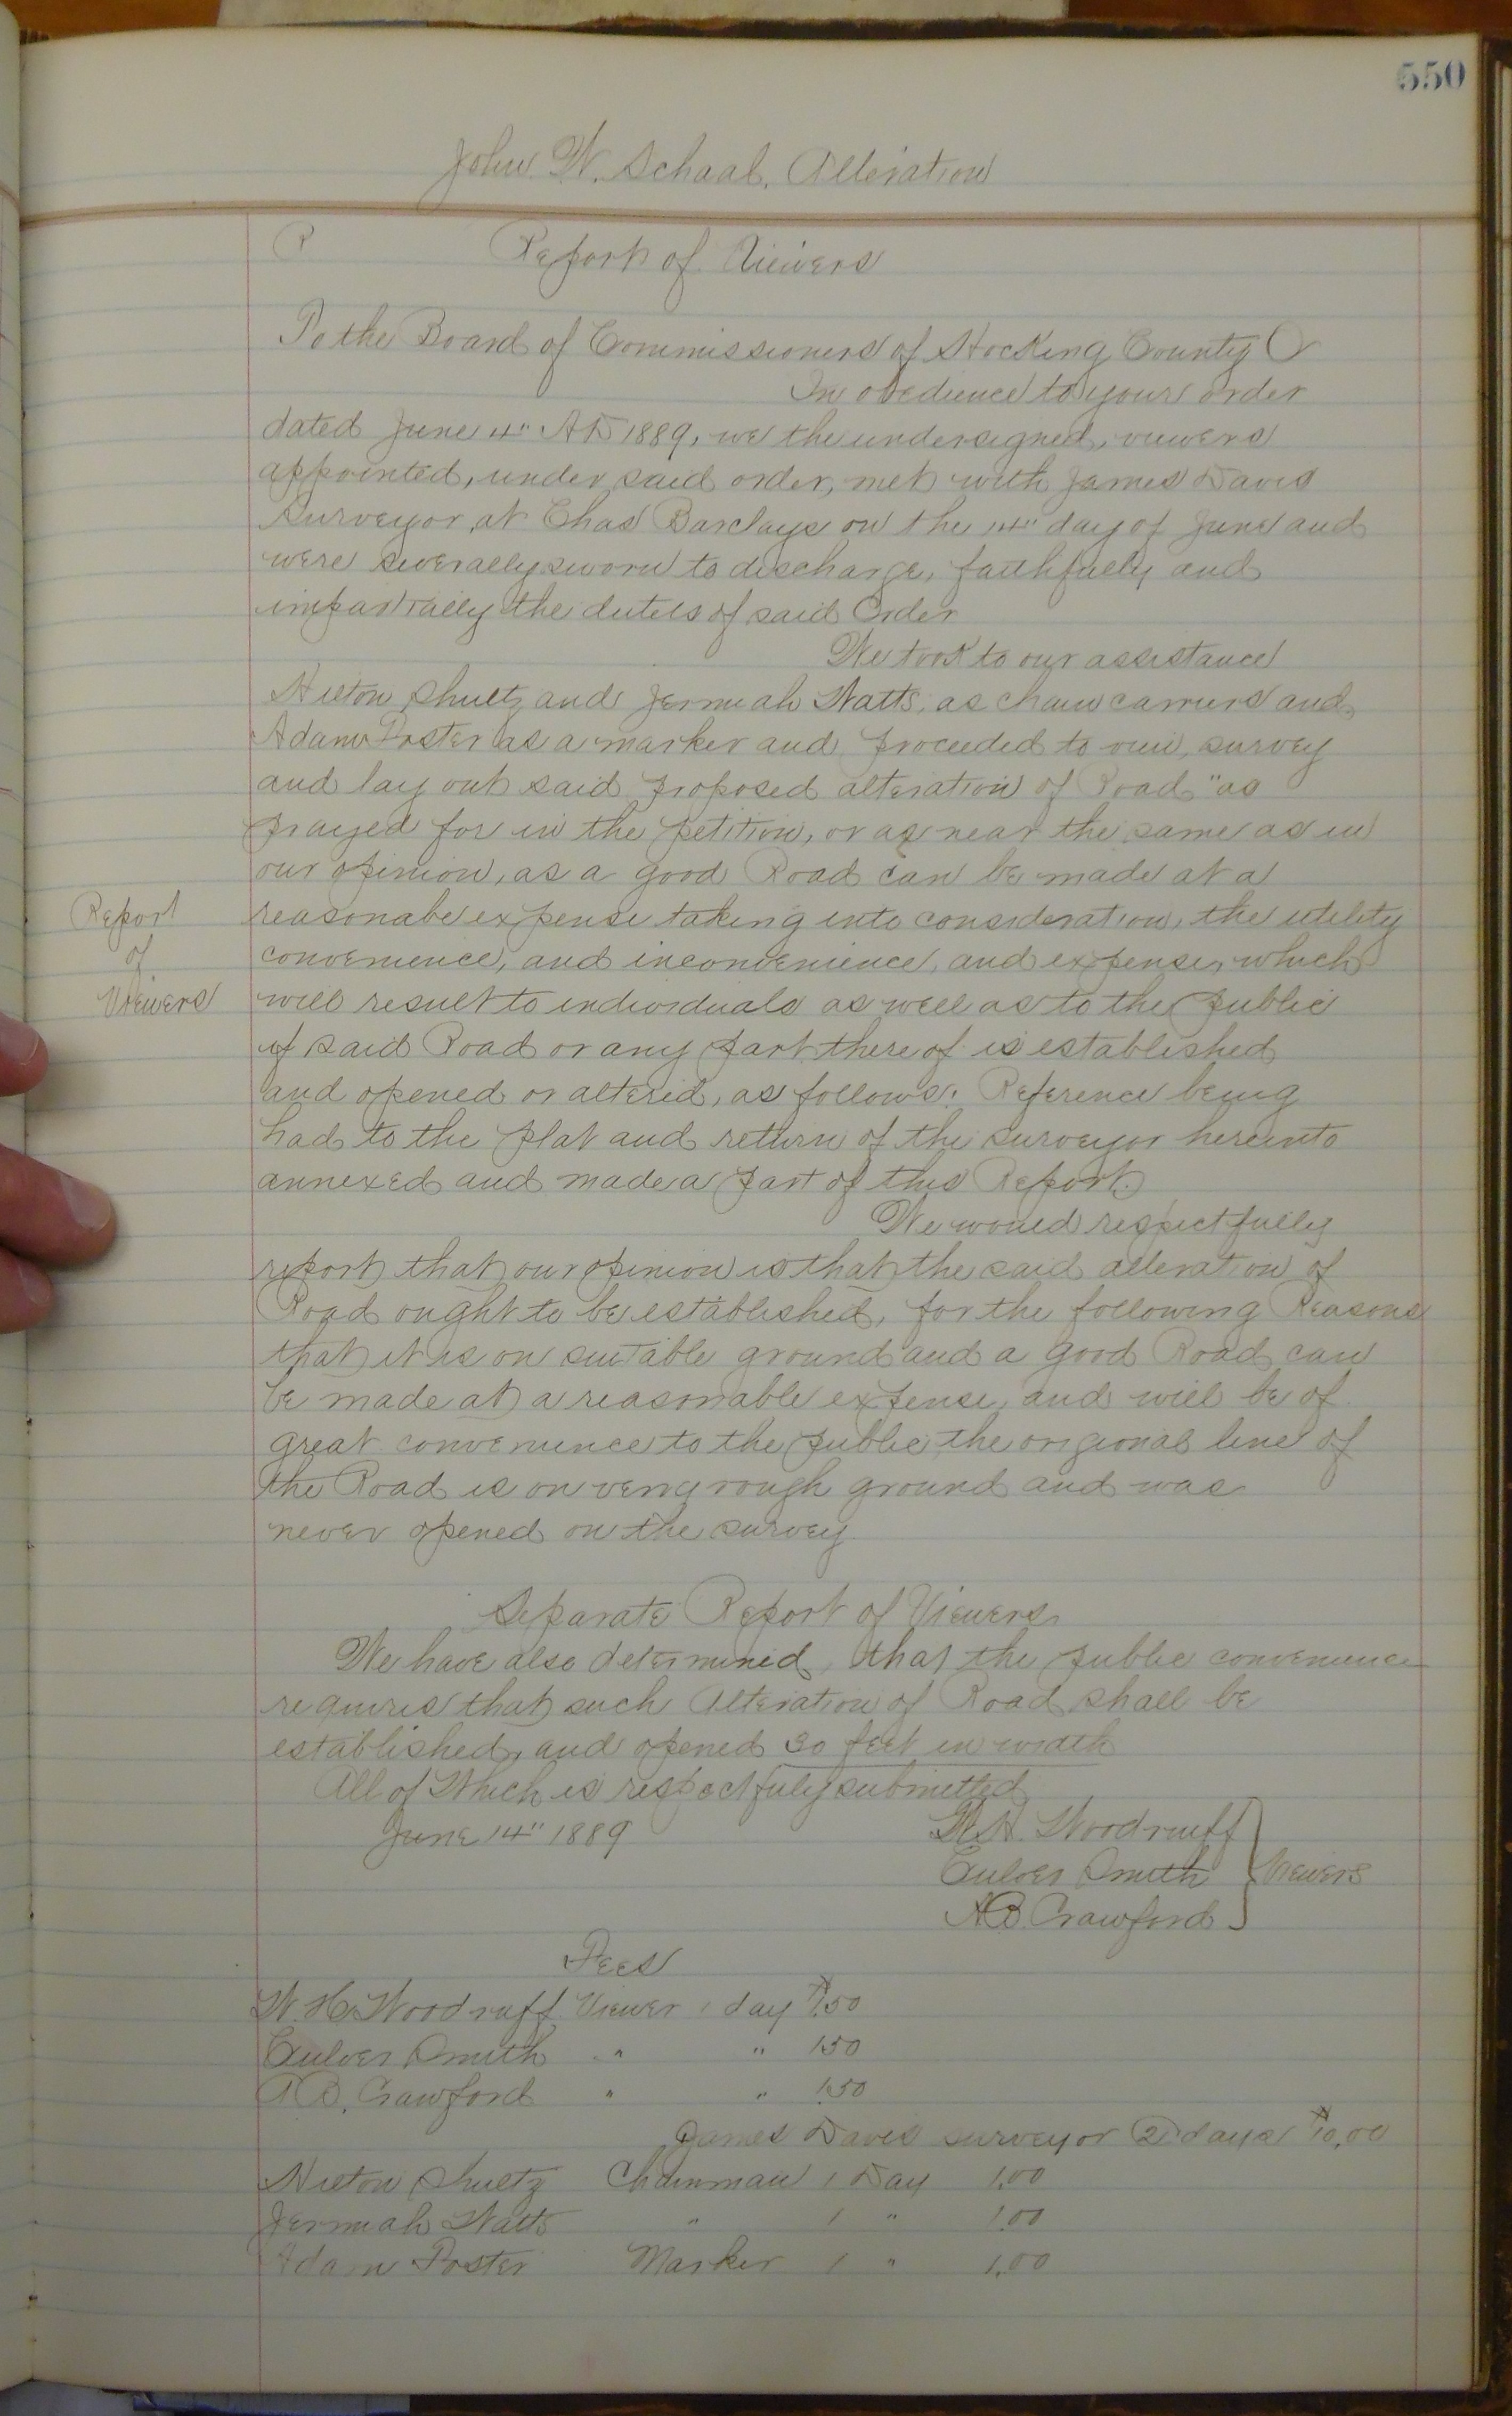 550
John W. Schaal, Alteration
Report of Viewers
To the Board of Commissioners of Hocking County O
In obedience to your order
dated June 4" AD 1889, we the undersigned, viewers
appointed, under said order, met with James Davis
Surveyor, at Chas Barclays on the 14" day of June and
were severally sworn to discharge, faithfully and
impartially the duteis of said Order
We took to our assistance
Hilton Shultz and Jermiah Watts, as chain carriers and
Adam Poster as a marker and proceeded to view, survey
and lay out said proposed alteration of Road "as
prayed for in the petition, or as near the same as in
our opinion, as a good Road can be made at a
Report
of
Viewers
reasonabe expense taking into consideration, the utility
convenience, and inconvenience, and expense, which
will result to individuals as well as to the public
if said Road or any part thereof is established
and opened or altered, as follows: Reference being
had to the plat and return of the surveyor hereinto
annexed and made a part of this Report.
We would respectfully
report that our opinion is that the said alteration of
Road ought to be established, for the following Reasons
that it is on suitable ground and a good Road can
be made at a reasonable expense, and will be of
great convenience to the public, the origional line of
the Road is on very rough ground and was
never opened on the survey
Separate Report of Viewers
We have also determined, that the public convenience
requires that such Alteration of Road shall be
established, and opened 30 feet in width
All of Which is respectfuly submitted
June 14" 1889
W.H. Woodruff
Culver Smith
Viewers
A.B. Crawford
Fees
W. H. Woodruff Viewer 1 day $1.50
Culver Smith " " 1.50
A B. Crawford " " 1.50
James Davis surveyor 2 days $10,00
Hilton Shultz Chainman 1 Day 1.00
Jermiah Watts " 1 " 1.00
Adam Poster Marker 1 " 1.00